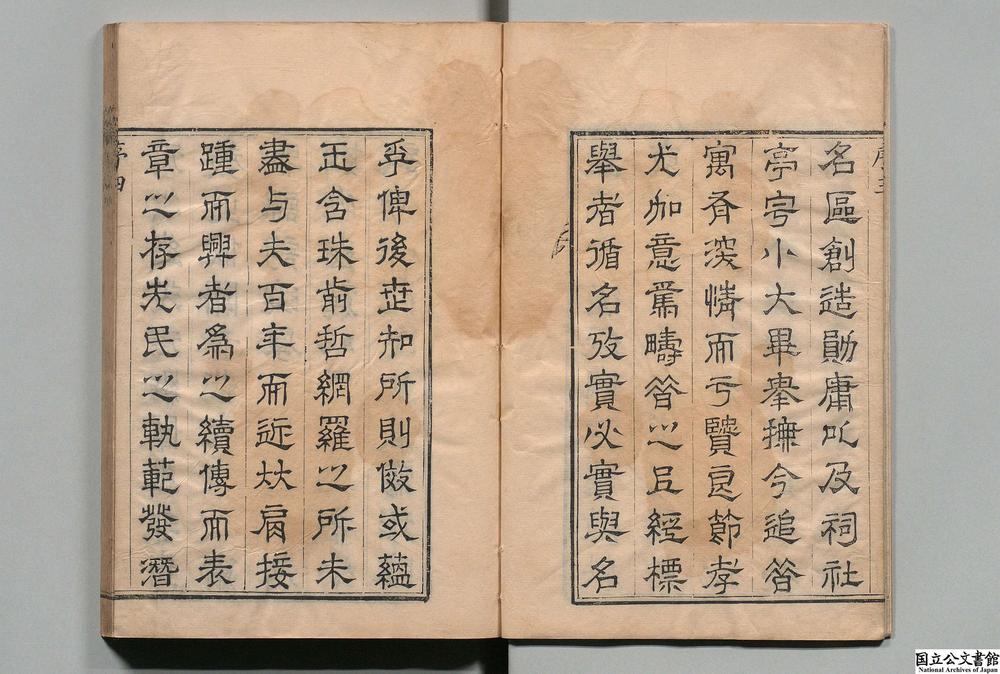 序三
名區創造勛庸㕥及祠社
亭宇小大畢舉撫今追昔
寓有深情而亏賢良節孝
尤加意焉疇昔之已經標
舉者循名攷實必實與名
孚俾後世知所則傚或蘊
玉含珠前哲網羅之所未
盡与夫百年而近比肩接
踵而興者爲之續傳而表
章之存先民之軌範發潛
序四
国立公文書館
National Archives of Japan